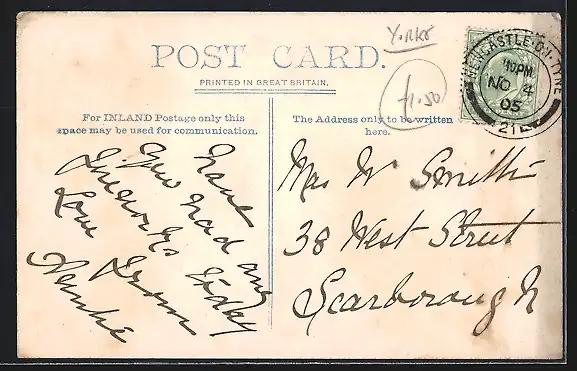 Yorks
POST CARD.
PRINTED IN GREAT BRITAIN.
£1.50
NEWCASTLE-ON-TYNE
PM
NO 4
05
For INLAND Postage only this
space may be used for communication.
The Address only to be written
here.
Have
you had any
fireworks today
Love from
Mrs W Smith
38 West Street
Scarborough